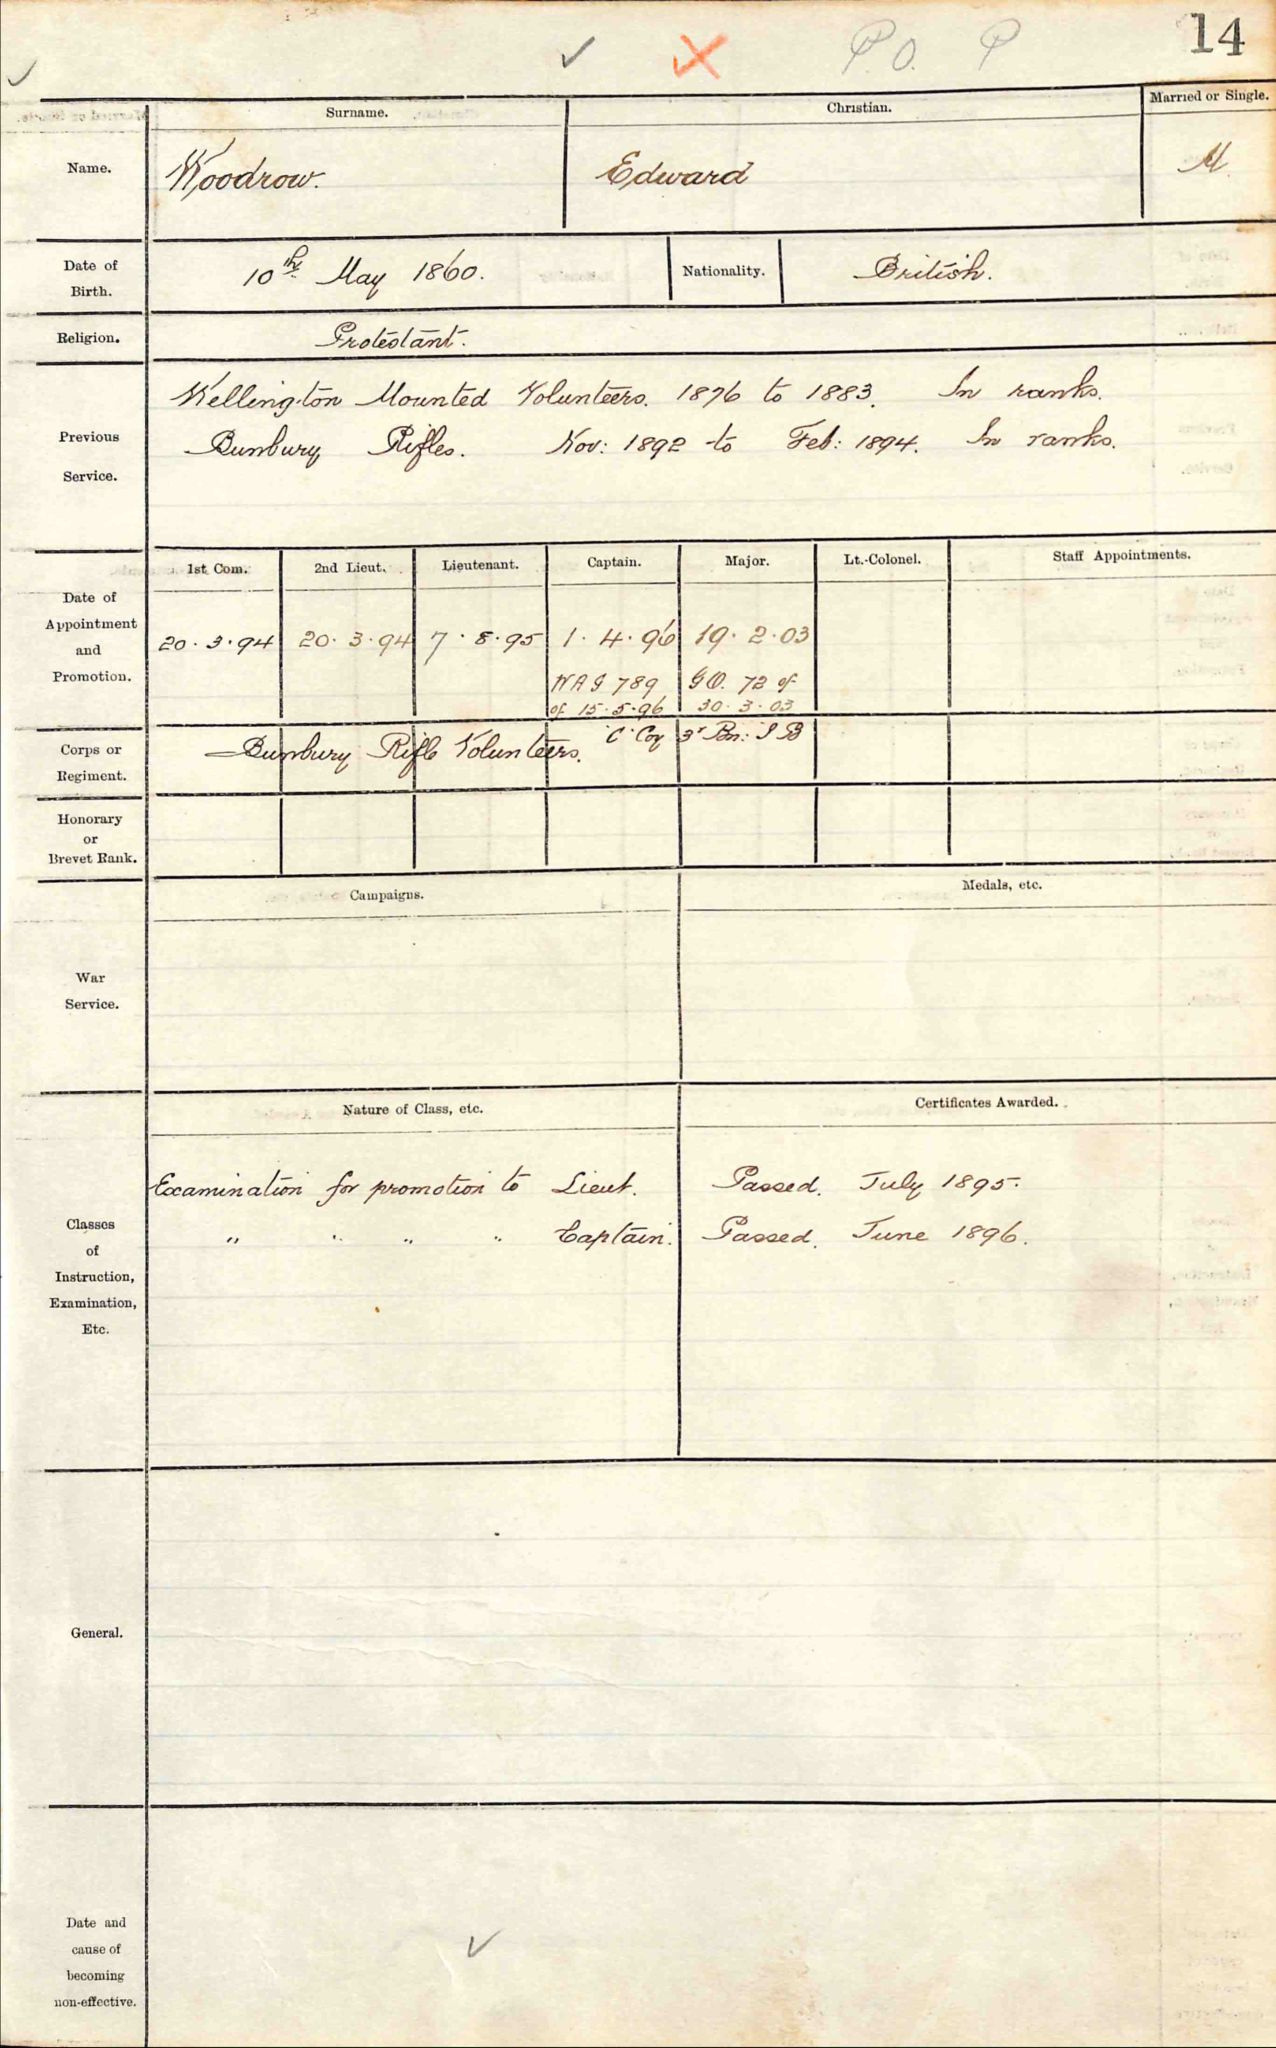 P.O. P
14
Surname.
Christian.
Married or Single.
Name.
Woodrow.
Edward
M
Date of
Birth.
10th May 1860.
Nationality.
British.
Religion.
Protestant.
Previous
Service.
Wellington Mounted Volunteers. 1876 to 1883. In ranks.
Bunbury Rifles. Nov: 1892 to Feb: 1894. In ranks.
Date of
Appointment
and
Promotion.
1st Com.
2nd Lieut.
Lieutenant.
Captain.
Major.
Lt.-Colonel.
Staff Appointments.
20.3.94
20.3.94
7.8.95
1.4.96
19.2.03
WAG 789
of 15.5.96
GO. 72 of
30.3.03
Corps or
Regiment.
Bunbury Rifle Volunteers.
"C" Coy 3r Bn: I B
Honorary
or
Brevet Rank.
Campaigns.
Medals, etc.
War
Service.
Nature of Class, etc.
Certificates Awarded.
Classes
of
Instruction,
Examination,
Etc.
Examination for promotion to Lieut.
Passed. July 1895.
" " " " Captain.
Passed. June 1896.
General.
Date and
cause of
becoming
non-effective.